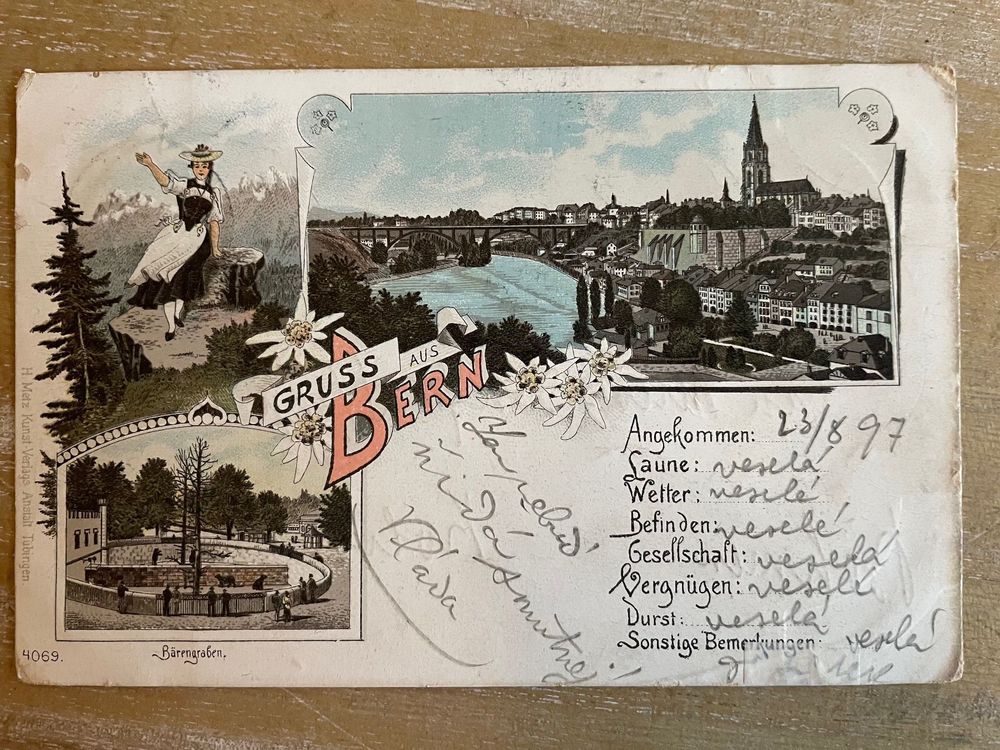 GRUSS AUS
BERN
Angekommen: 23/8 97
Laune: veselá
Wetter: veselé
Befinden: veselé
Gesellschaft: veselá
Vergnügen: veselé
Durst: veselá
Sonstige Bemerkungen: veselá
Jen nebuď
nikdá smutná!
Vláda
H. Metz Kunst-Verlags-Anstalt Tübingen.
4069.
Bärengraben.